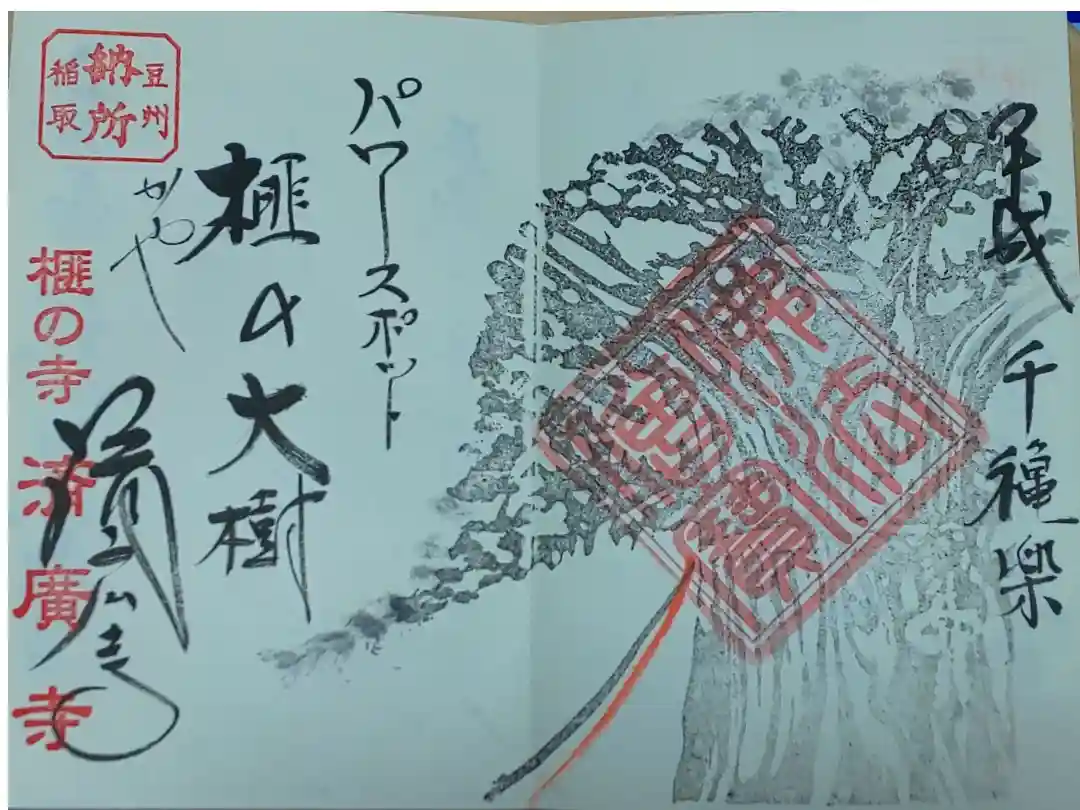 平成 千穐楽
パワースポット
榧の大樹
かや
豆州
納所
稲取
榧の寺 済廣寺
済広寺